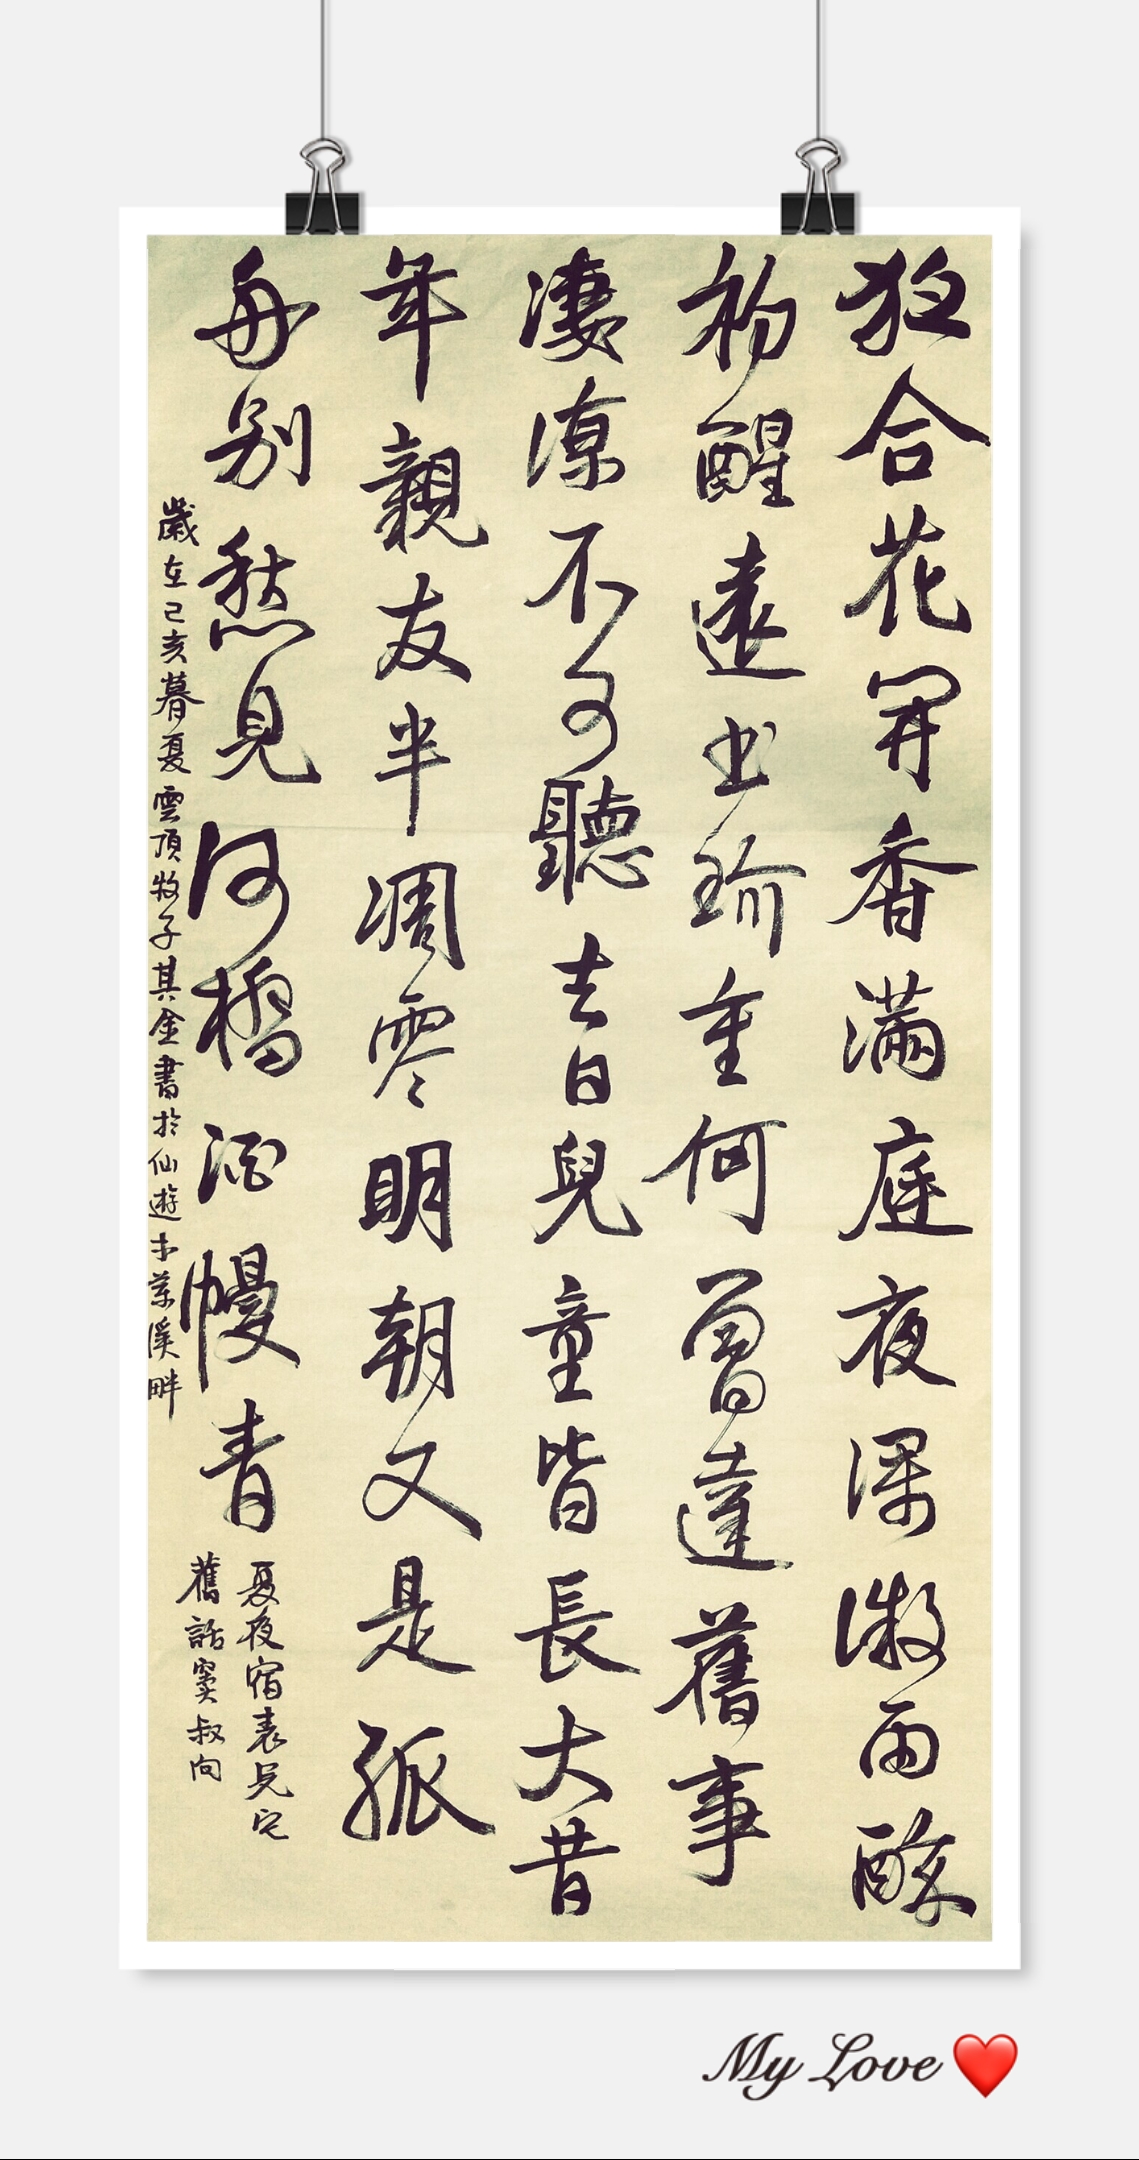 夜合花開香滿庭夜深微雨醉
初醒遠書珍重何曾達舊事
淒涼不可聽去日兒童皆長大昔
年親友半凋零明朝又是孤
舟別愁見河橋酒幔青
夏夜宿表兄宅
舊話竇叔向
歲在己亥暮夏雲頂牧子其金書於仙遊木蘭溪畔
My Love